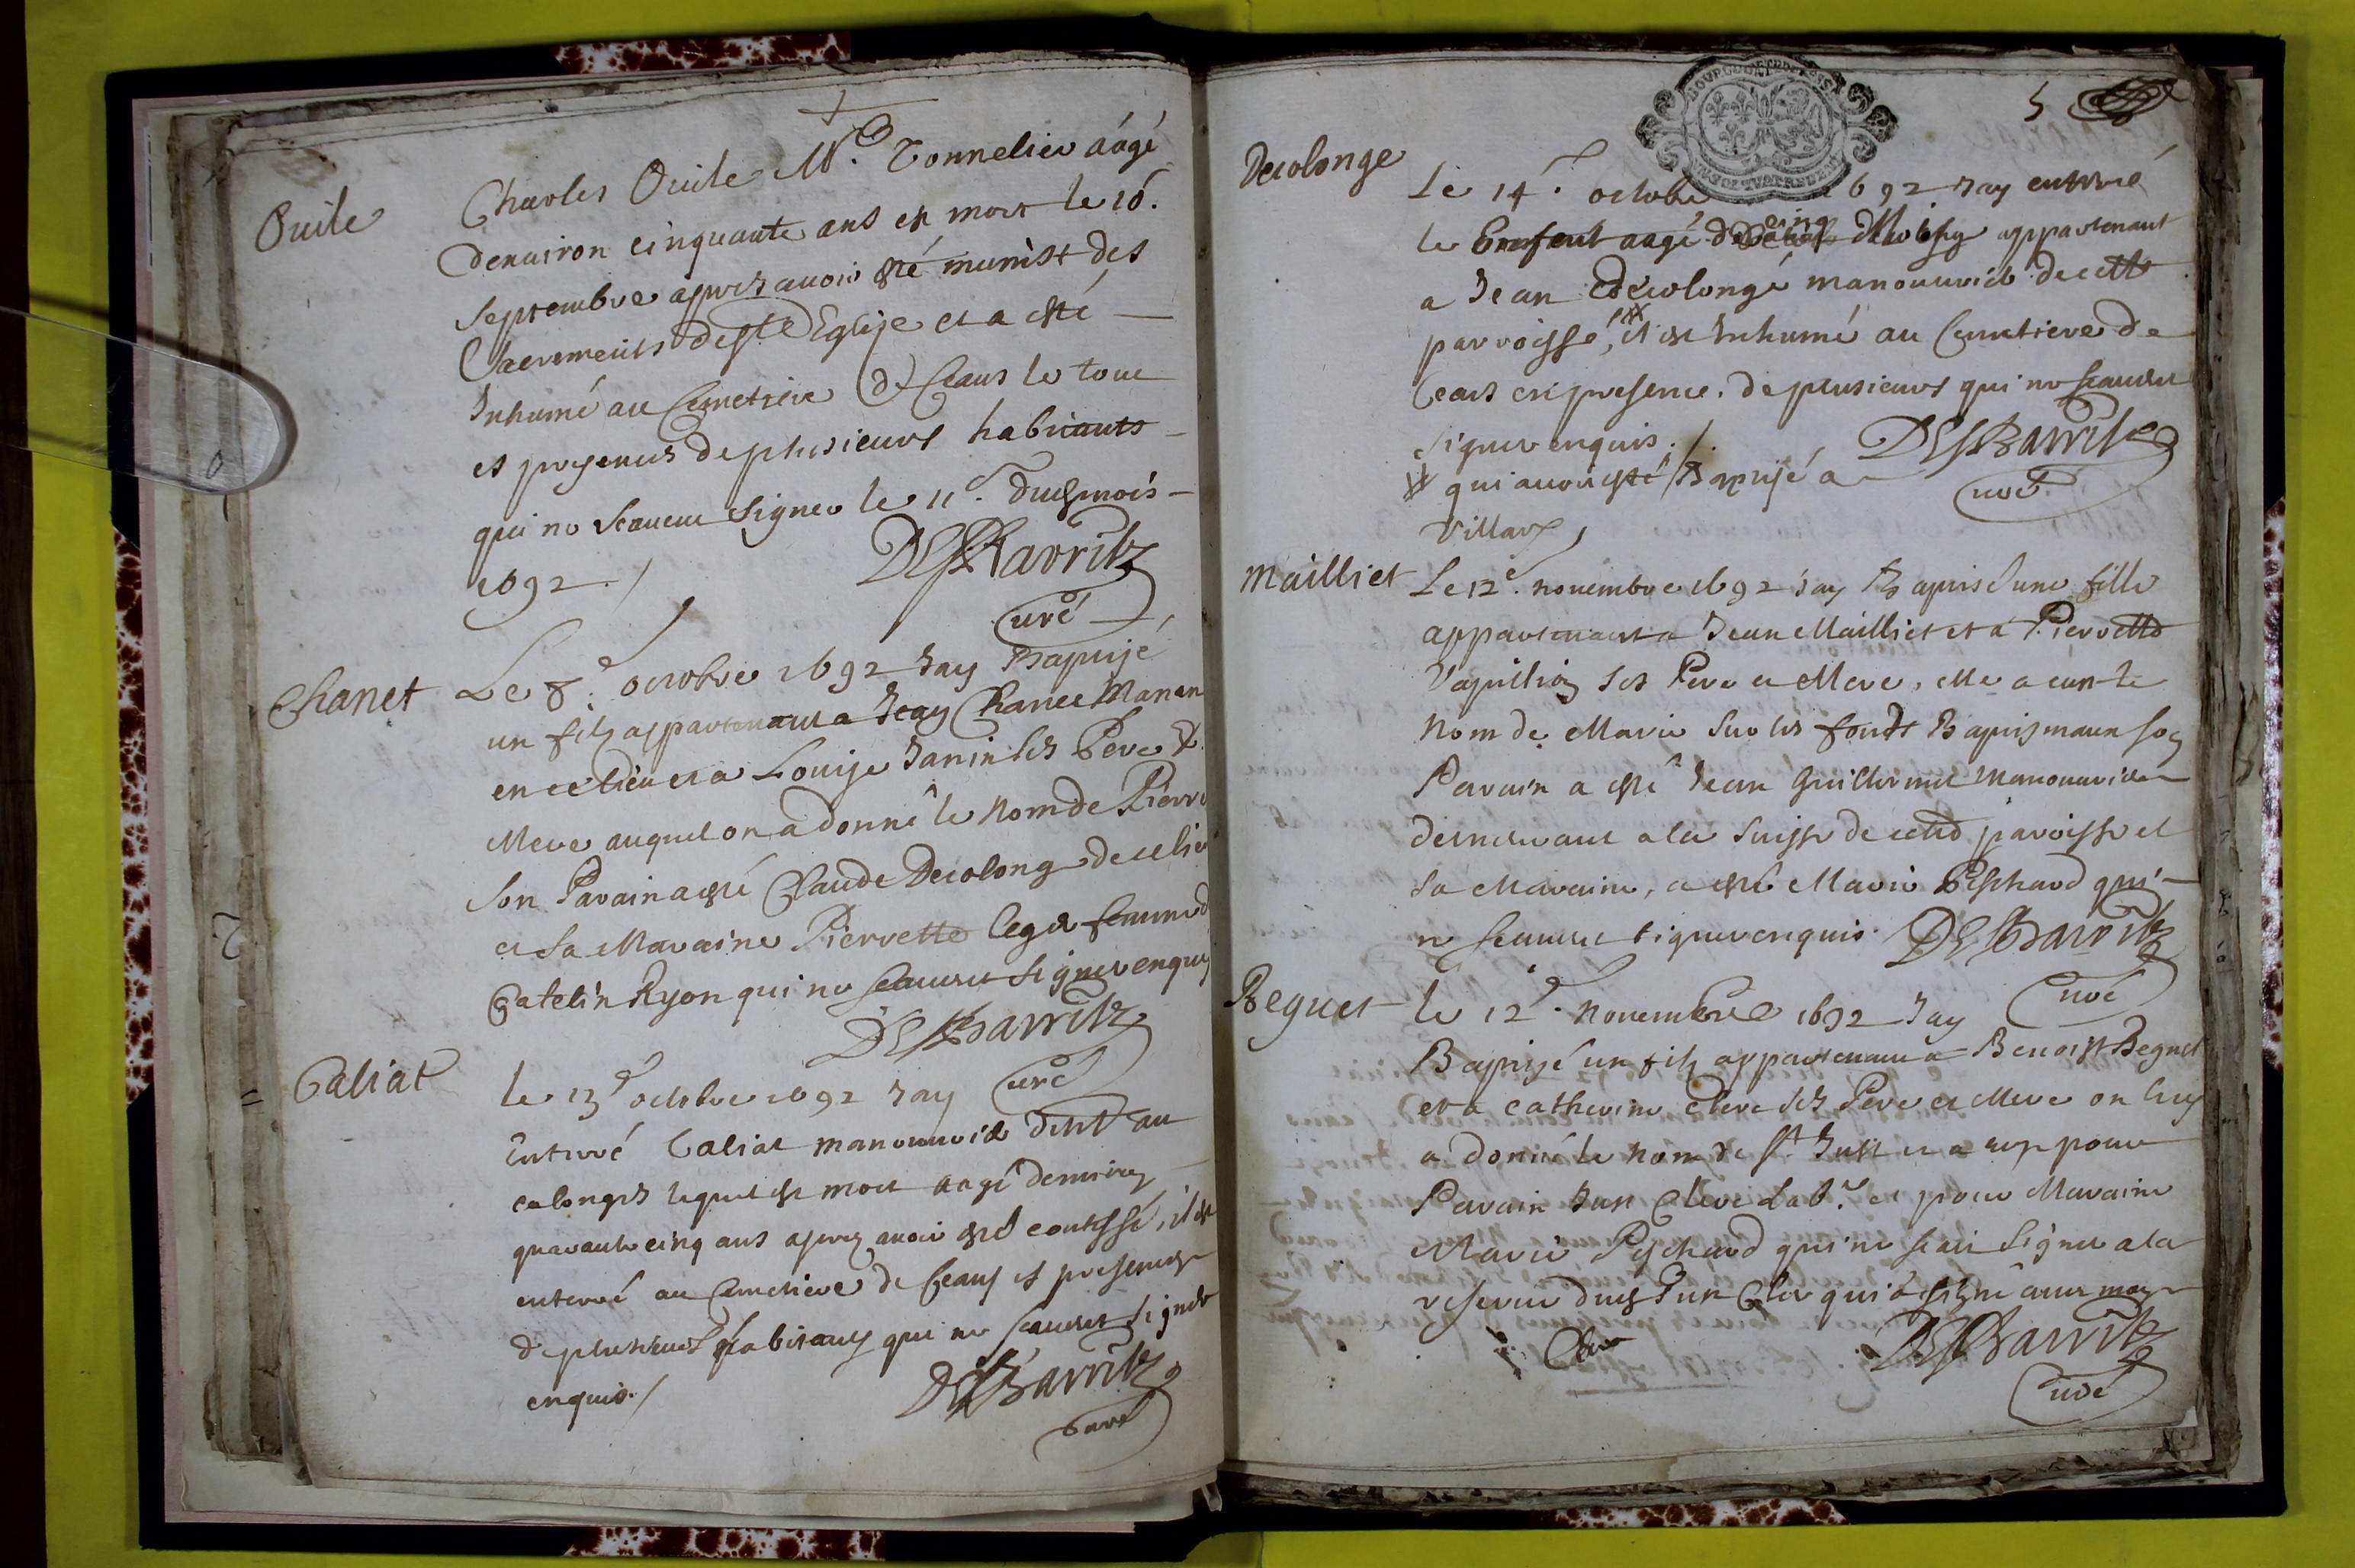 Ouile
Charles Ouile Me. Tonnelier aagé
denuiron cinquante ans est mort le 10.
septembre apres auoir esté munist des
sacrements de ste Eglise et a esté
Inhumé au Cemetiere de Ceans le tout
es presences de plusieurs habitants
qui ne scauent signer le 11e. dud mois
1692 ./
Desbarritz
curé
Chanet
Le 8e. octobre 1692 Jay Baptisé
un filz appartenant a Jean Chanet Manan
en ce lieu et a Louise Janin ses Pere &
Mere auquel on a donné le nom de Pierre
son Parain a esté Claude Decolong de ce lieu
et sa Maraine Pierrette leger femme d
Catelin Ryon qui ne scauent signer enquis
Desbarritz
curé
Caliat
le 13e octobre 1692 Jay
Enterré Caliat manouurier
colonges lequel est mort aagé denuiron
quarante cinq ans apres auoir esté confessé, il est
enterré au Cemetiere de Ceans es presences
de plusieurs habitans qui ne scauent signer
enquis ./
Desbarritz
curé
5
Decolonge
Le 14e. octobre 1692 Jay enterré
le Enfant aagé de cinq appartenant
a Jean Decolonge manouurier de cette
parroisse, il est Inhumé au Cemetiere de
Ceans en presence de plusieurs qui ne scauent
signer enquis ./.
Desbarritz
curé
qui auoit esté Baptisé a
Villars
Mailliet
Le 12e. nouembre 1692 Jay Baptisé une fille
appartenant a Jean Mailliet et a Pierrette
Vapillion ses Pere et Mere, elle a eu le
nom de Marie sur les fonds Baptismaux son
Parain a esté Jean Guillermet Manouurier
demeurant a la suisse de cette paroisse et
sa Maraine, a esté Marie Peschard qui
ne scauent signer enquis
Desbarritz
curé
Beguet
le 12e. Nouembre 1692 Jay
Baptisé un filz appartenant a Benoist Beguet
et a Catherine Clerc ses Pere et Mere on luy
a donné le nom de St. Just et a eu pour
Parain Just Clerc Labr. et pour Maraine
Marie Peschard qui ne scait signer a la
reserue dud Just Clerc qui a signé auec moy
J. Clerc
Desbarritz
curé